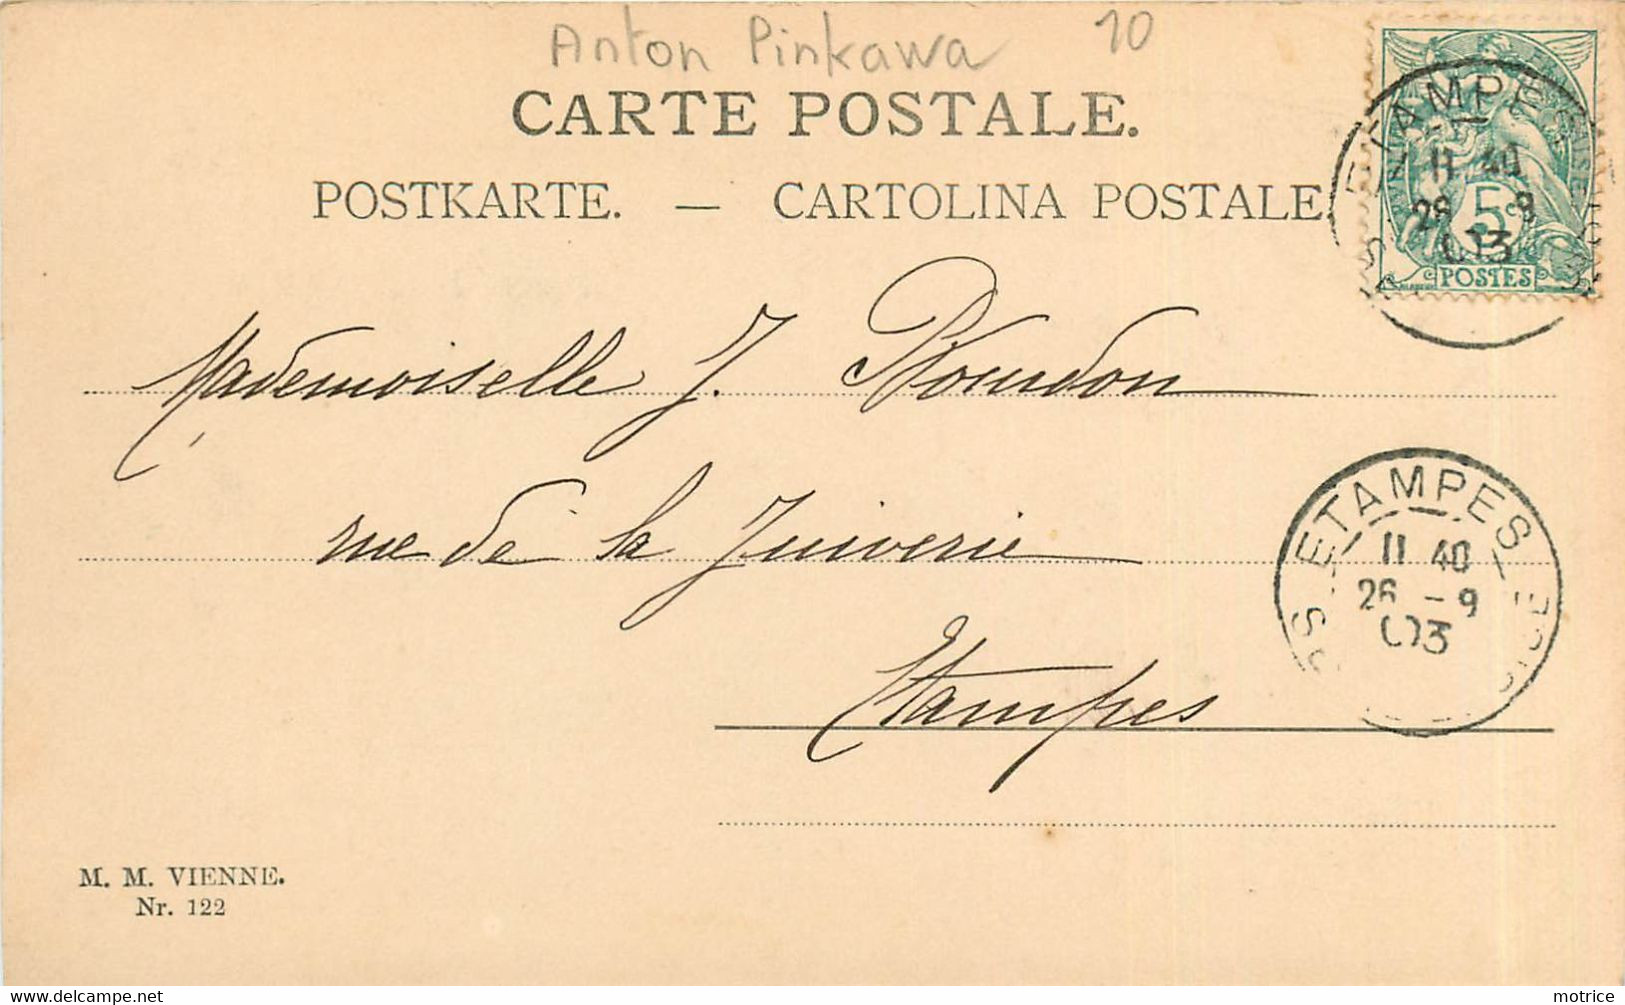 Anton Pinkawa 10
CARTE POSTALE.
POSTKARTE. — CARTOLINA POSTALE
ETAMPES
11 40
26 9
03
5c
POSTES
Mademoiselle J. Rourdon
rue de la Juiverie
Etampes
ETAMPES
11 40
26 - 9
03
M. M. VIENNE.
Nr. 122
motrice